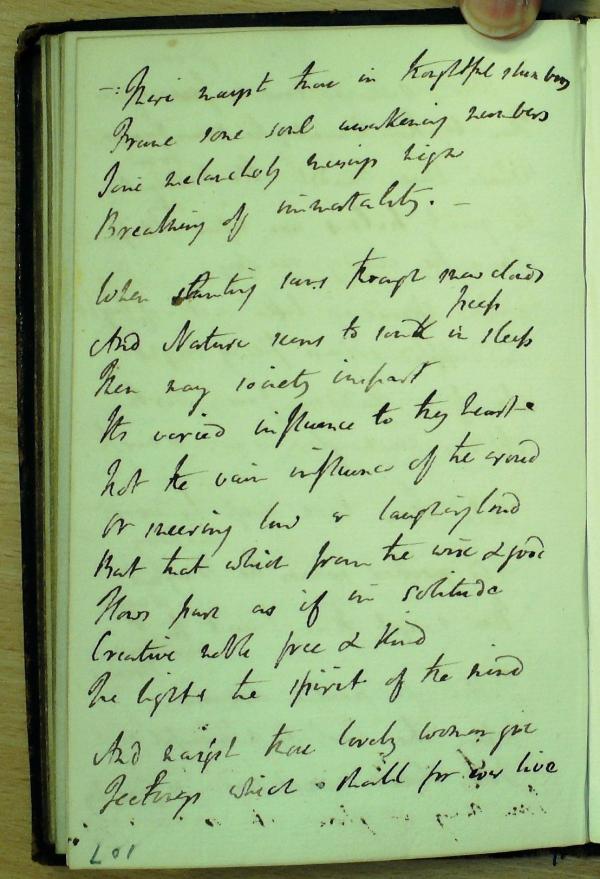 There mayst thou in thoughtful slumbers
Frame some soul awakening numbers
Some melancholy musings high
Breathing of immortality. –
When slanting suns through snow clouds
peep
And Nature seems to sink in sleep
Then may society impart
Its varied influence to thy heart
Not the vain influence of the crowd
Or sneering low or laughing loud
But that which from the wise & good
Flows pure as if in solitude
Creative noble free & kind
The light the spirit of the mind
And mayst thou lovely woman give
Feelings which shall for ever live
107